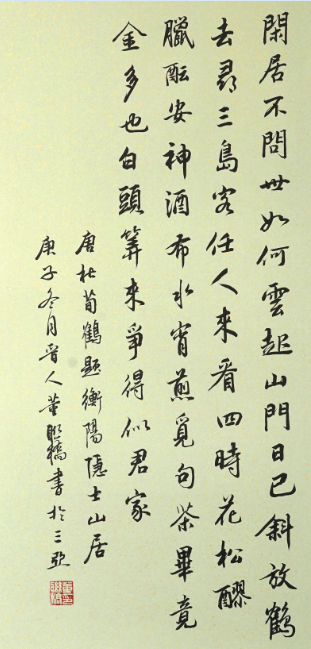 閑居不問世如何雲起山門日已斜放鶴
去尋三島客任人來看四時花松醪
臘醞安神酒布水宵煎覓句茶畢竟
金多也白頭筭來爭得似君家
唐杜荀鶴題衡陽隱士山居
庚子冬月晉人董聯橋書於三亞